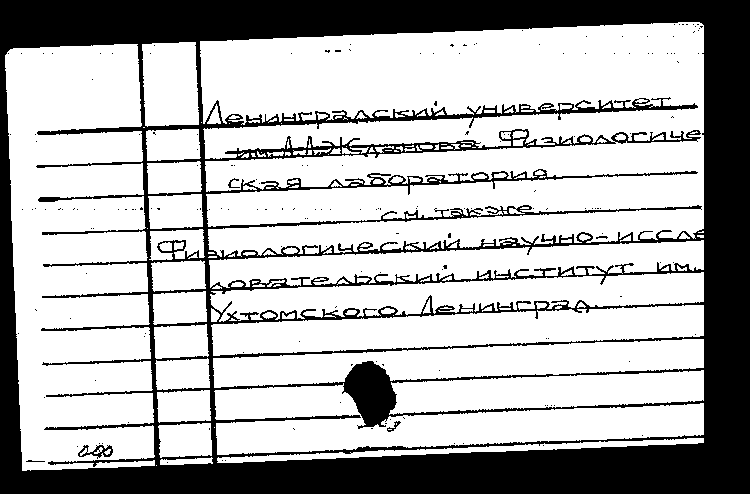 Ленинградский университет
им. А.А. Жданова. Физиологиче-
ская лаборатория.
см. также
Физиологический научно-иссле
довательский институт им.
Ухтомского. Ленинград.